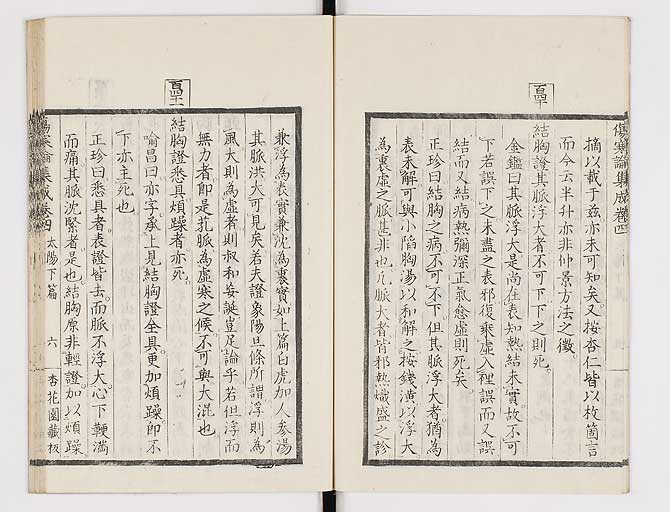 傷寒論集成卷四
百四十
摘以載于茲亦未可知矣又按杏仁皆以枚箇言
而今云半升亦非仲景方法之徵
結胸證其脈浮大者不可下下之則死
金鑑曰其脈浮大是尚在表知熱結未實故不可
下若誤下之未盡之表邪復乘虛入裡誤而又誤
結而又結病熱彌深正氣愈虛則死矣
正珍曰結胸之病不可不下但其脈浮大者猶為
表未解可與小陷胸湯以和解之按錢潢以浮大
為裏虛之脈甚非也凡脈大者皆邪熱熾盛之診
百四十一
兼浮為表實兼沈為裏實如上篇白虎加人參湯
其脈洪大可見矣若夫證象陽旦條所謂浮則為
風大則為虛者則叔和妄誕豈足論乎若但浮而
無力者即是芤脈為虛寒之候不可與大混也
結胸證悉具煩躁者亦死
喻昌曰亦字承上見結胸證全具更加煩躁即不
下亦主死也
正珍曰悉具者表證皆去而脈不浮大心下鞕滿
而痛其脈沈緊者是也結胸原非輕證加以煩躁
傷寒論集成卷四 太陽下篇 六 杏花園藏板